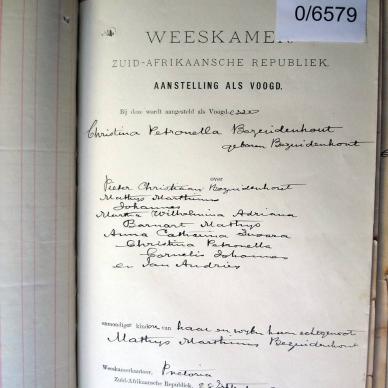 0/6579
WEESKAMER
ZUID-AFRIKAANSCHE REPUBLIEK.
AANSTELLING ALS VOOGD.
Bij deze wordt aangesteld als Voogd
Christina Petronella Bezuidenhout
geboren Bezuidenhout
over
Pieter Christiaan Bezuidenhout
Mathys Marthinus
Johannes
Martha Wilhelmina Adriana
Barnart Mathys
Anna Catharina Susara
Christina Petronella
Cornelis Johannes
en Jan Andries
minderjarige kinderen van haar en wijlen haar echtgenoot
Mathys Marthinus Bezuidenhout
Weeskamerkantoor, Pretoria
Zuid-Afrikaansche Republiek, 22